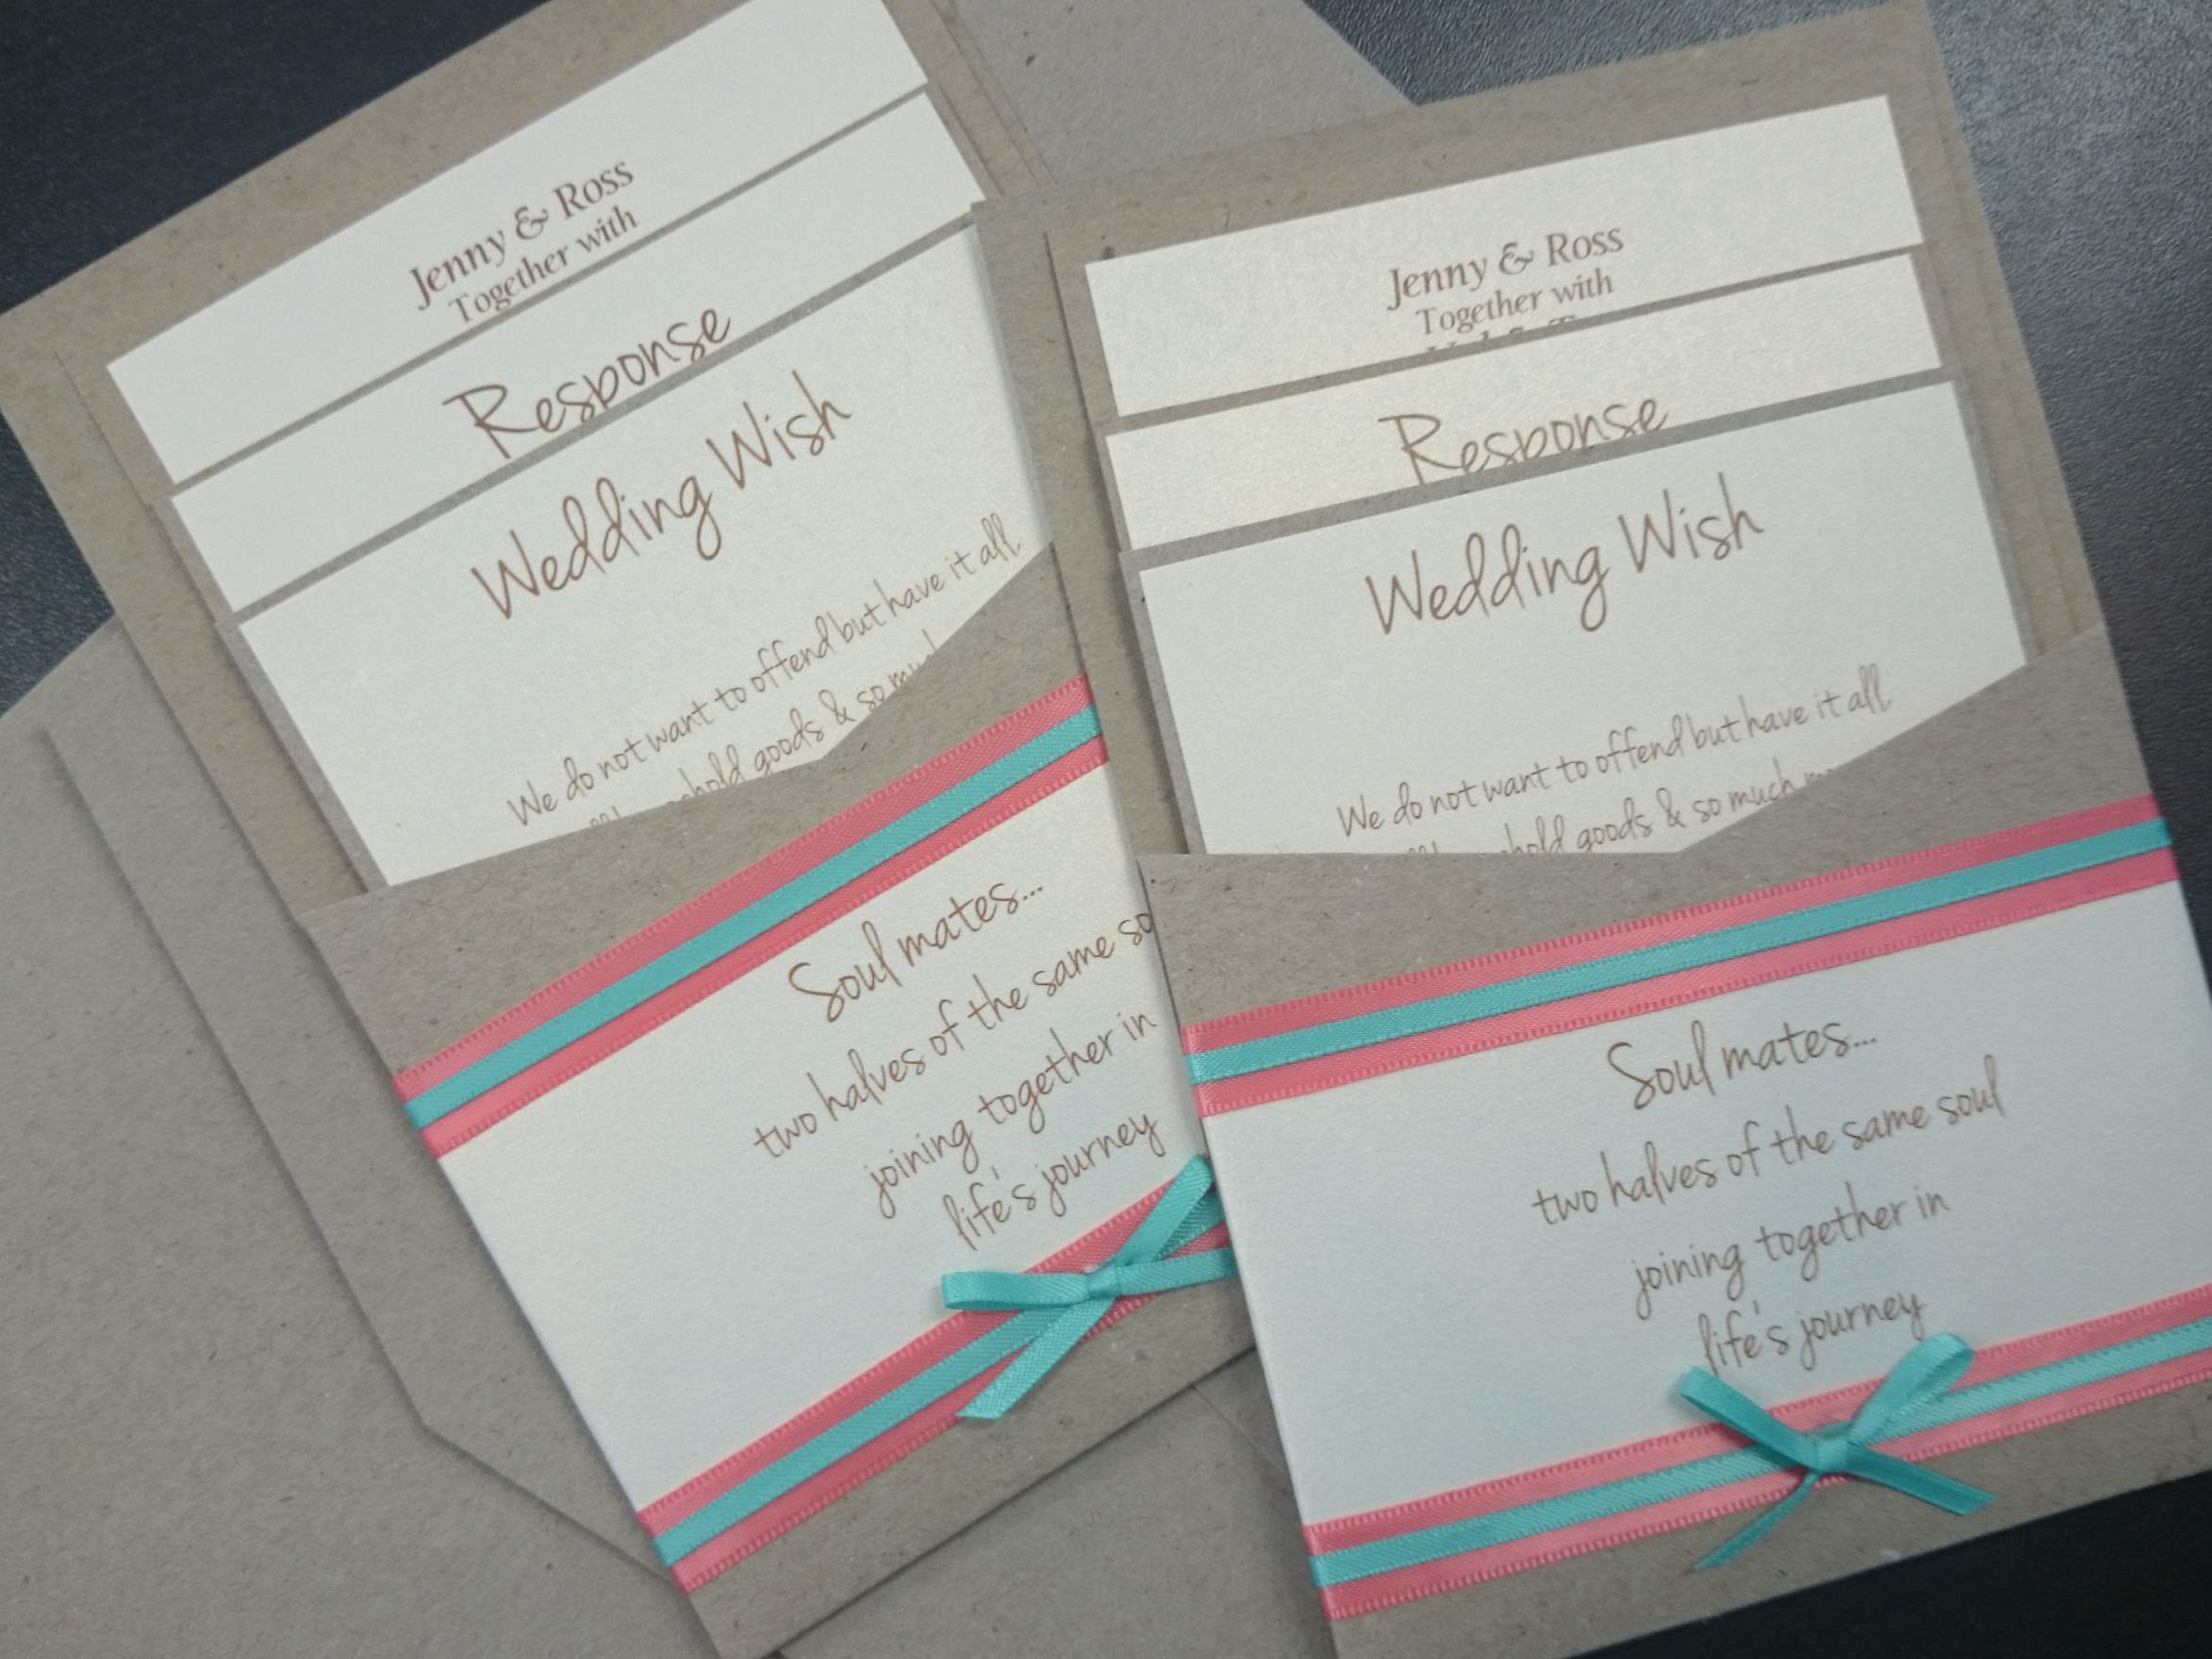 Jenny & Ross
Together with
Response
Wedding Wish
We do not want to offend but have it all,
goods & so
Soul mates...
two halves of the same
joining together in
life's journey
Jenny & Ross
Together with
Response
Wedding Wish
We do not want to offend but have it all,
goods & so much
Soul mates...
two halves of the same soul
joining together in
life's journey